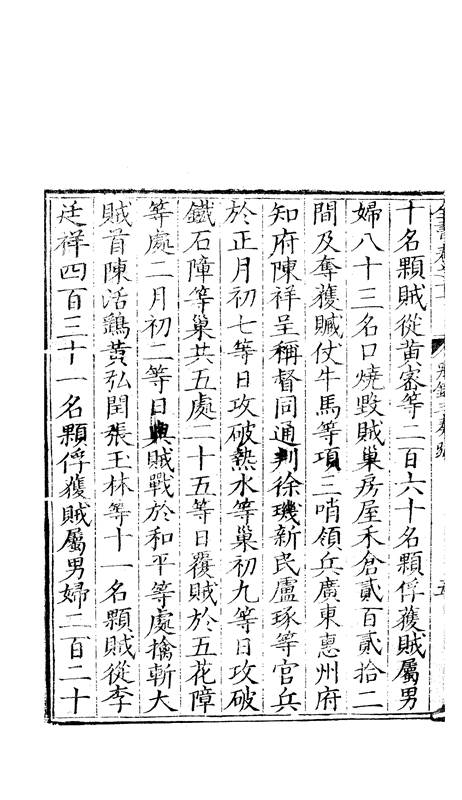 十名顆賊從黄密等二百六十名顆俘獲賊屬男
婦八十三名口燒毀賊巢房屋禾倉貳百貳拾二
間及奪獲贓仗牛馬等項三哨領兵廣東惠州府
知府陳祥呈稱督同通判徐璣新民盧琢等官兵
於正月初七等日攻破熱水等巢初九等日攻破
鐵石障等巢共五處二十五等日覆賊於五花障
等處二月初二等日與賊戰於和平等處擒斬大
賊首陳活鷂黄弘閏張玉林等十一名顆賊從李
廷祥四百三十一名顆俘獲賊屬男婦二百二十